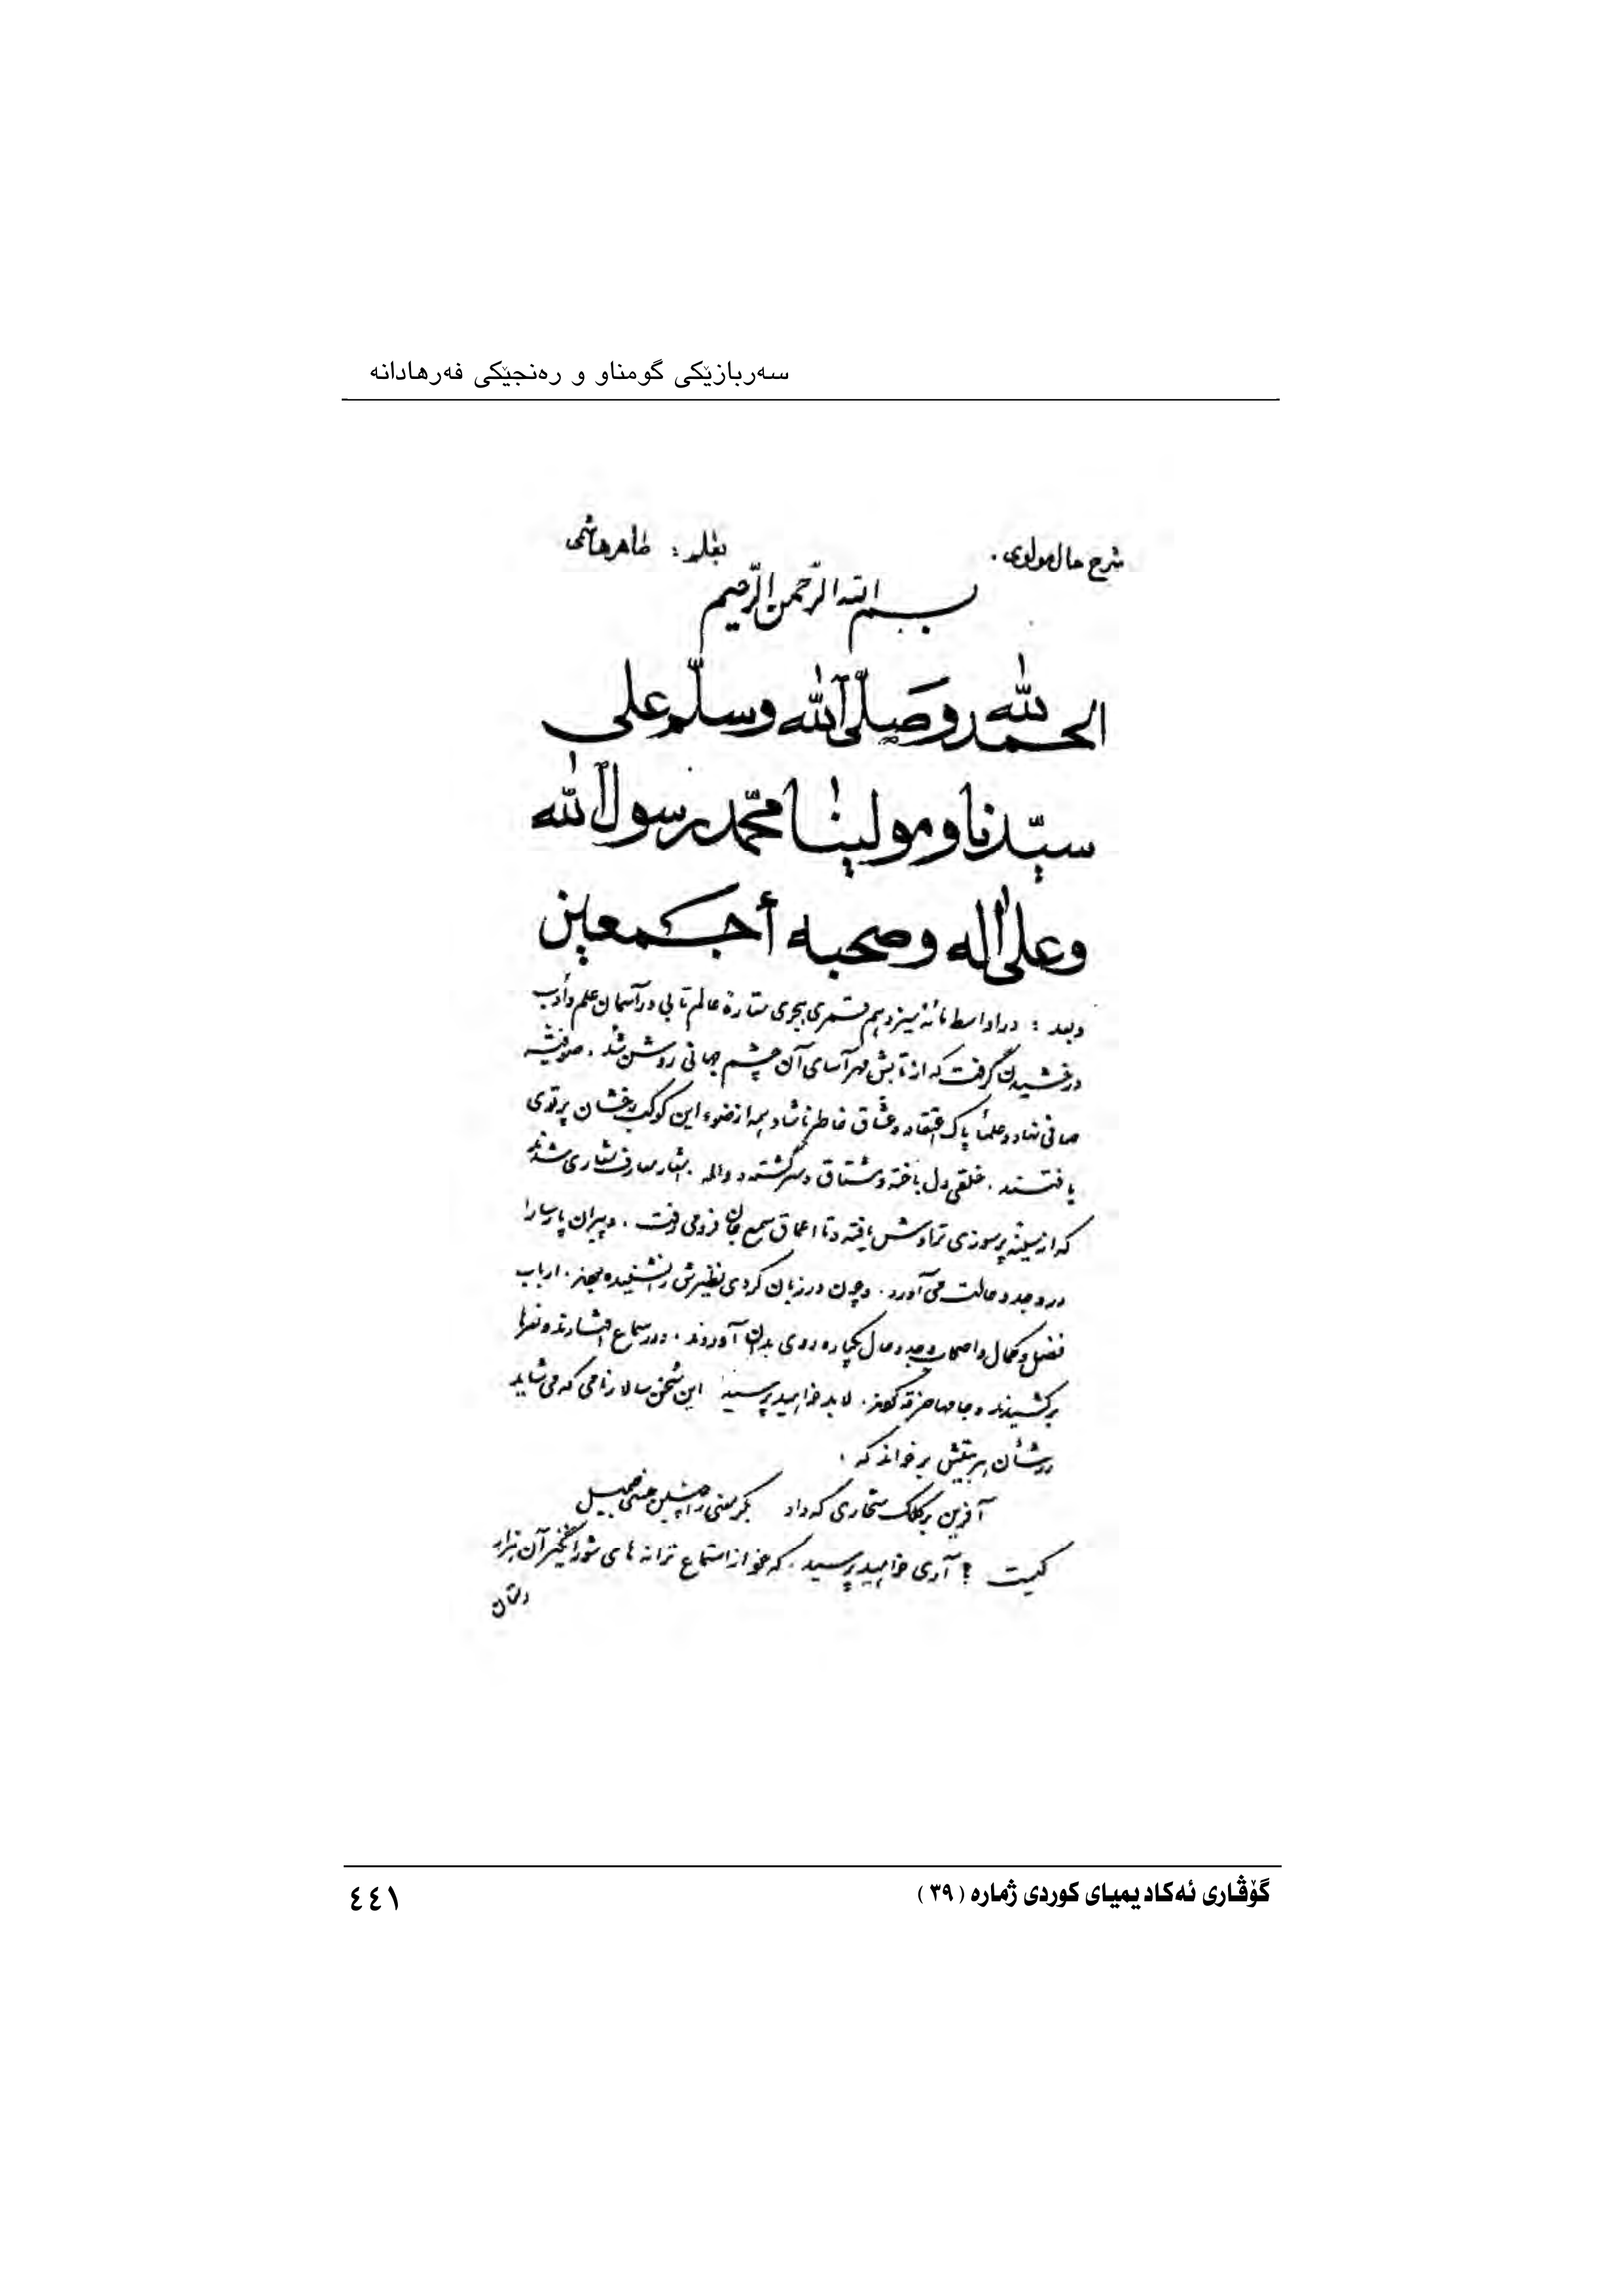 سەربازێکی گومناو و رەنجێکی فەرهادانە
شرح حال مولوی. بقلم: طاهر هاشمی
بسم الله الرّحمن الرّحیم
الحمد لله وَصلّی الله وسلّم علی
سیّدنا و مولینا محمّد رسول الله
وعلی اله وصحبه أجمعین
وبعد: در اواسط مائهٔ سیزدهم قمری هجری ستارهٔ عالم تابی در آسمان علم و أدب
درخشیدن گرفت که از تابش مهرآسای آن چشم جهانی روشن شد. صوفیهٔ
صافی نهاد و علمأ پاک اعتقاد و عشّاق خاطر ناشاد همه از ضوء این کوکب درخشان پرتوی
یافتند. خلقی دل باخته و مشتاق و سرگشته و واله شدند
که از سینهٔ پرسوزی تراوش یافته و تا اعماق سمع جان فرو می رفت. و پیران پارسا را
در وجد و حالت می آورد. و چون در زبان کردی نظیرش را نشنیده بودند. ارباب
فضل و کمال و اصحاب وجد و حال یکباره روی بدان آوردند. و در سماع افتادند و نعرها
برکشیدند و جامها خرقه کردند. لابد خواهید پرسید این سخن سالار نامی که می شاید
در شأن هر بیتش برخواند که.
آفرین بر کلک سحّاری که داد بکر معنی را چنین حسنی جمیل
کیست؟ آری خواهید پرسید. که خود از استماع ترانه های شورانگیز آن هزار
دستان
گۆڤاری ئەکادیمیای کوردی ژمارە ( ٣٩ ) ٤٤١